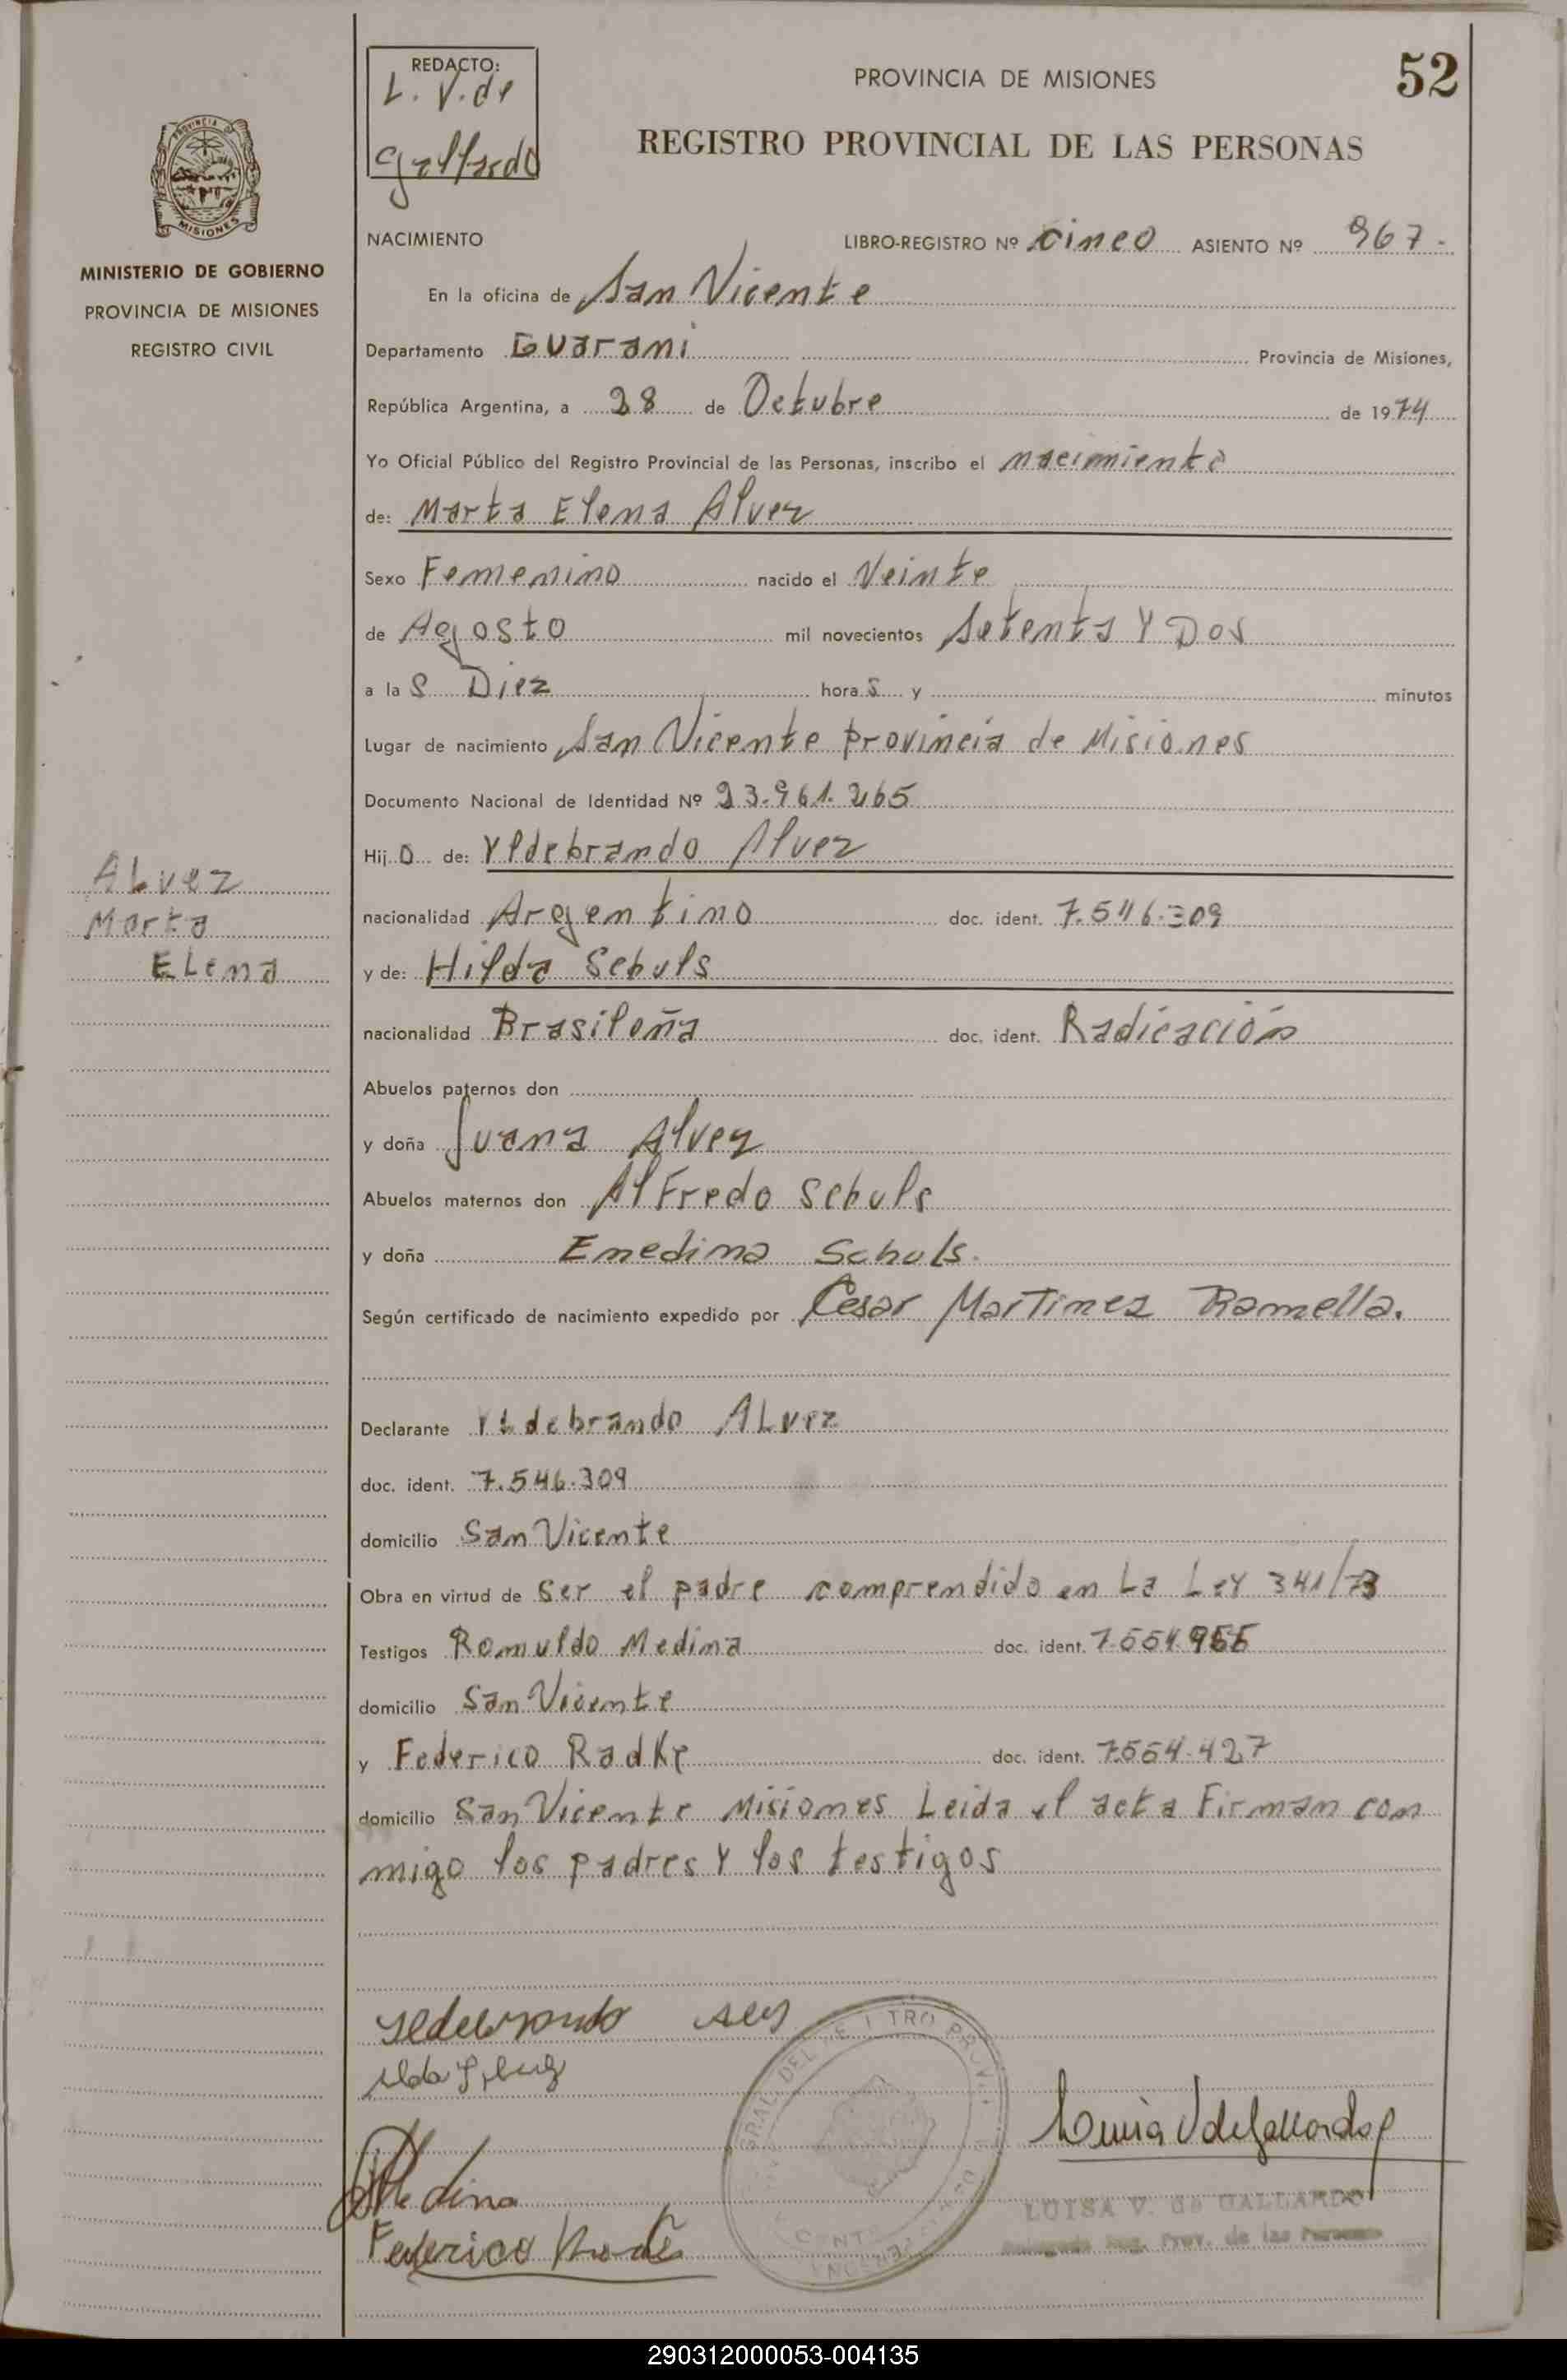 REDACTO:
L. V. de
Gallardo
PROVINCIA DE MISIONES
52
REGISTRO PROVINCIAL DE LAS PERSONAS
PROVINCIA DE
MISIONES
MINISTERIO DE GOBIERNO
PROVINCIA DE MISIONES
REGISTRO CIVIL
NACIMIENTO
LIBRO-REGISTRO Nº cinco ASIENTO Nº 967-
En la oficina de San Vicente
Departamento Guarani Provincia de Misiones,
República Argentina, a 28 de Octubre de 1974
Yo Oficial Público del Registro Provincial de las Personas, inscribo el nacimiento
de: Marta Elena Alvez
Sexo Femenino nacido el Veinte
de Agosto mil novecientos Setenta Y Dos
a las Diez horas y minutos
Lugar de nacimiento San Vicente provincia de Misiones
Documento Nacional de Identidad Nº 23.961.265
Hijo de: Yldebrando Alvez
nacionalidad Argentino doc. ident. 7.546.309
y de: Hilda Schuls
nacionalidad Brasileña doc. ident. Radicación
Abuelos paternos don
y doña Juana Alvez
Abuelos maternos don Alfredo Schuls
y doña Enedina Schuls.
Según certificado de nacimiento expedido por Cesar Martinez Ramella.
Declarante Yldebrando ALvez
doc. ident. 7.546.309
domicilio San Vicente
Obra en virtud de Ser el padre comprendido en La Ley 341/73
Testigos Romuldo Medina doc. ident.
domicilio San Vicente
y Federico Radke doc. ident. 7554.427
domicilio San Vicente Misiones Leida el acta Firman con
migo los padres Y los testigos
ALvez
Marta
ELena
Medina
Federico
Luisa V de Gallardo
LUISA V. de GALLARDO
Delegada Reg. Prov. de las Personas
290312000053-004135